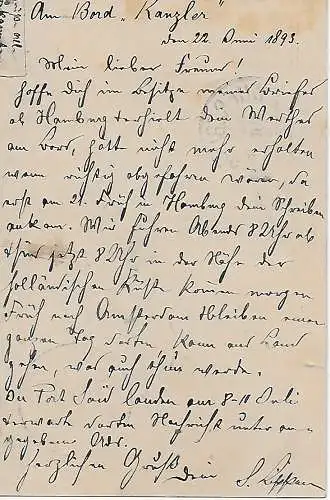 Am Bord „Kanzler“
den 22. Juni 1893.
Mein lieber Freund!
Hoffe dich im Besitze meines Briefes
als Hamburg erhielt dein Werthes
am Bord, hätte nicht mehr erhalten
wenn richtig abgefahren wären, da
erst am 21. Früh in Hamburg dein Schreiben
ankam. Wir fuhren Abends 8 Uhr ab
jetzt 8 Uhr in der Nähe der
holländischen Küste komen morgen
Früh nach Amsterdam bleiben einen
ganzen Tag dorten kann ans Land
gehen, was auch thun werde.
In Port Said landen am 8-10 Juli
erwarte dorten Nachricht unter an
gegebene Adr.
Herzlichen Gruß
dein S.